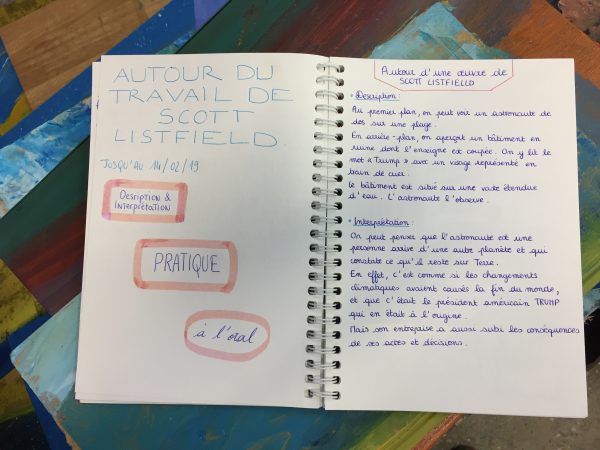 AUTOUR DU
TRAVAIL DE
SCOTT
LISTFIELD
JUSQU'AU 14/02/19
Desription &
Interprétation
PRATIQUE
à l'oral
Autour d'une œuvre de
SCOTT LISTFIELD
• Description :
Au premier plan, on peut voir un astronaute de
dos sur une plage.
En arrière-plan, on aperçoit un bâtiment en
ruine dont l'enseigne est coupée. On y lit le
mot « Trump » avec un visage représenté en
train de crier.
Le bâtiment est situé sur une vaste étendue
d'eau. L'astronaute l'observe.
• Interprétation :
On peut penser que l'astronaute est une
personne arrivé d'une autre planète et qui
constate ce qu'il reste sur Terre.
En effet, c'est comme si les changements
climatiques avaient causés la fin du monde,
et que c'était le président américain TRUMP
qui en était à l'origine.
Mais son entreprise a aussi subi les conséquences
de ses actes et décisions.